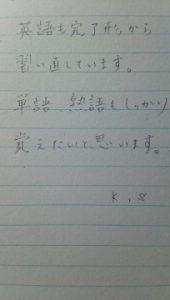 英語も完了形から
習い直しています。
単語、熟語もしっかり
覚えたいと思います。
K,S